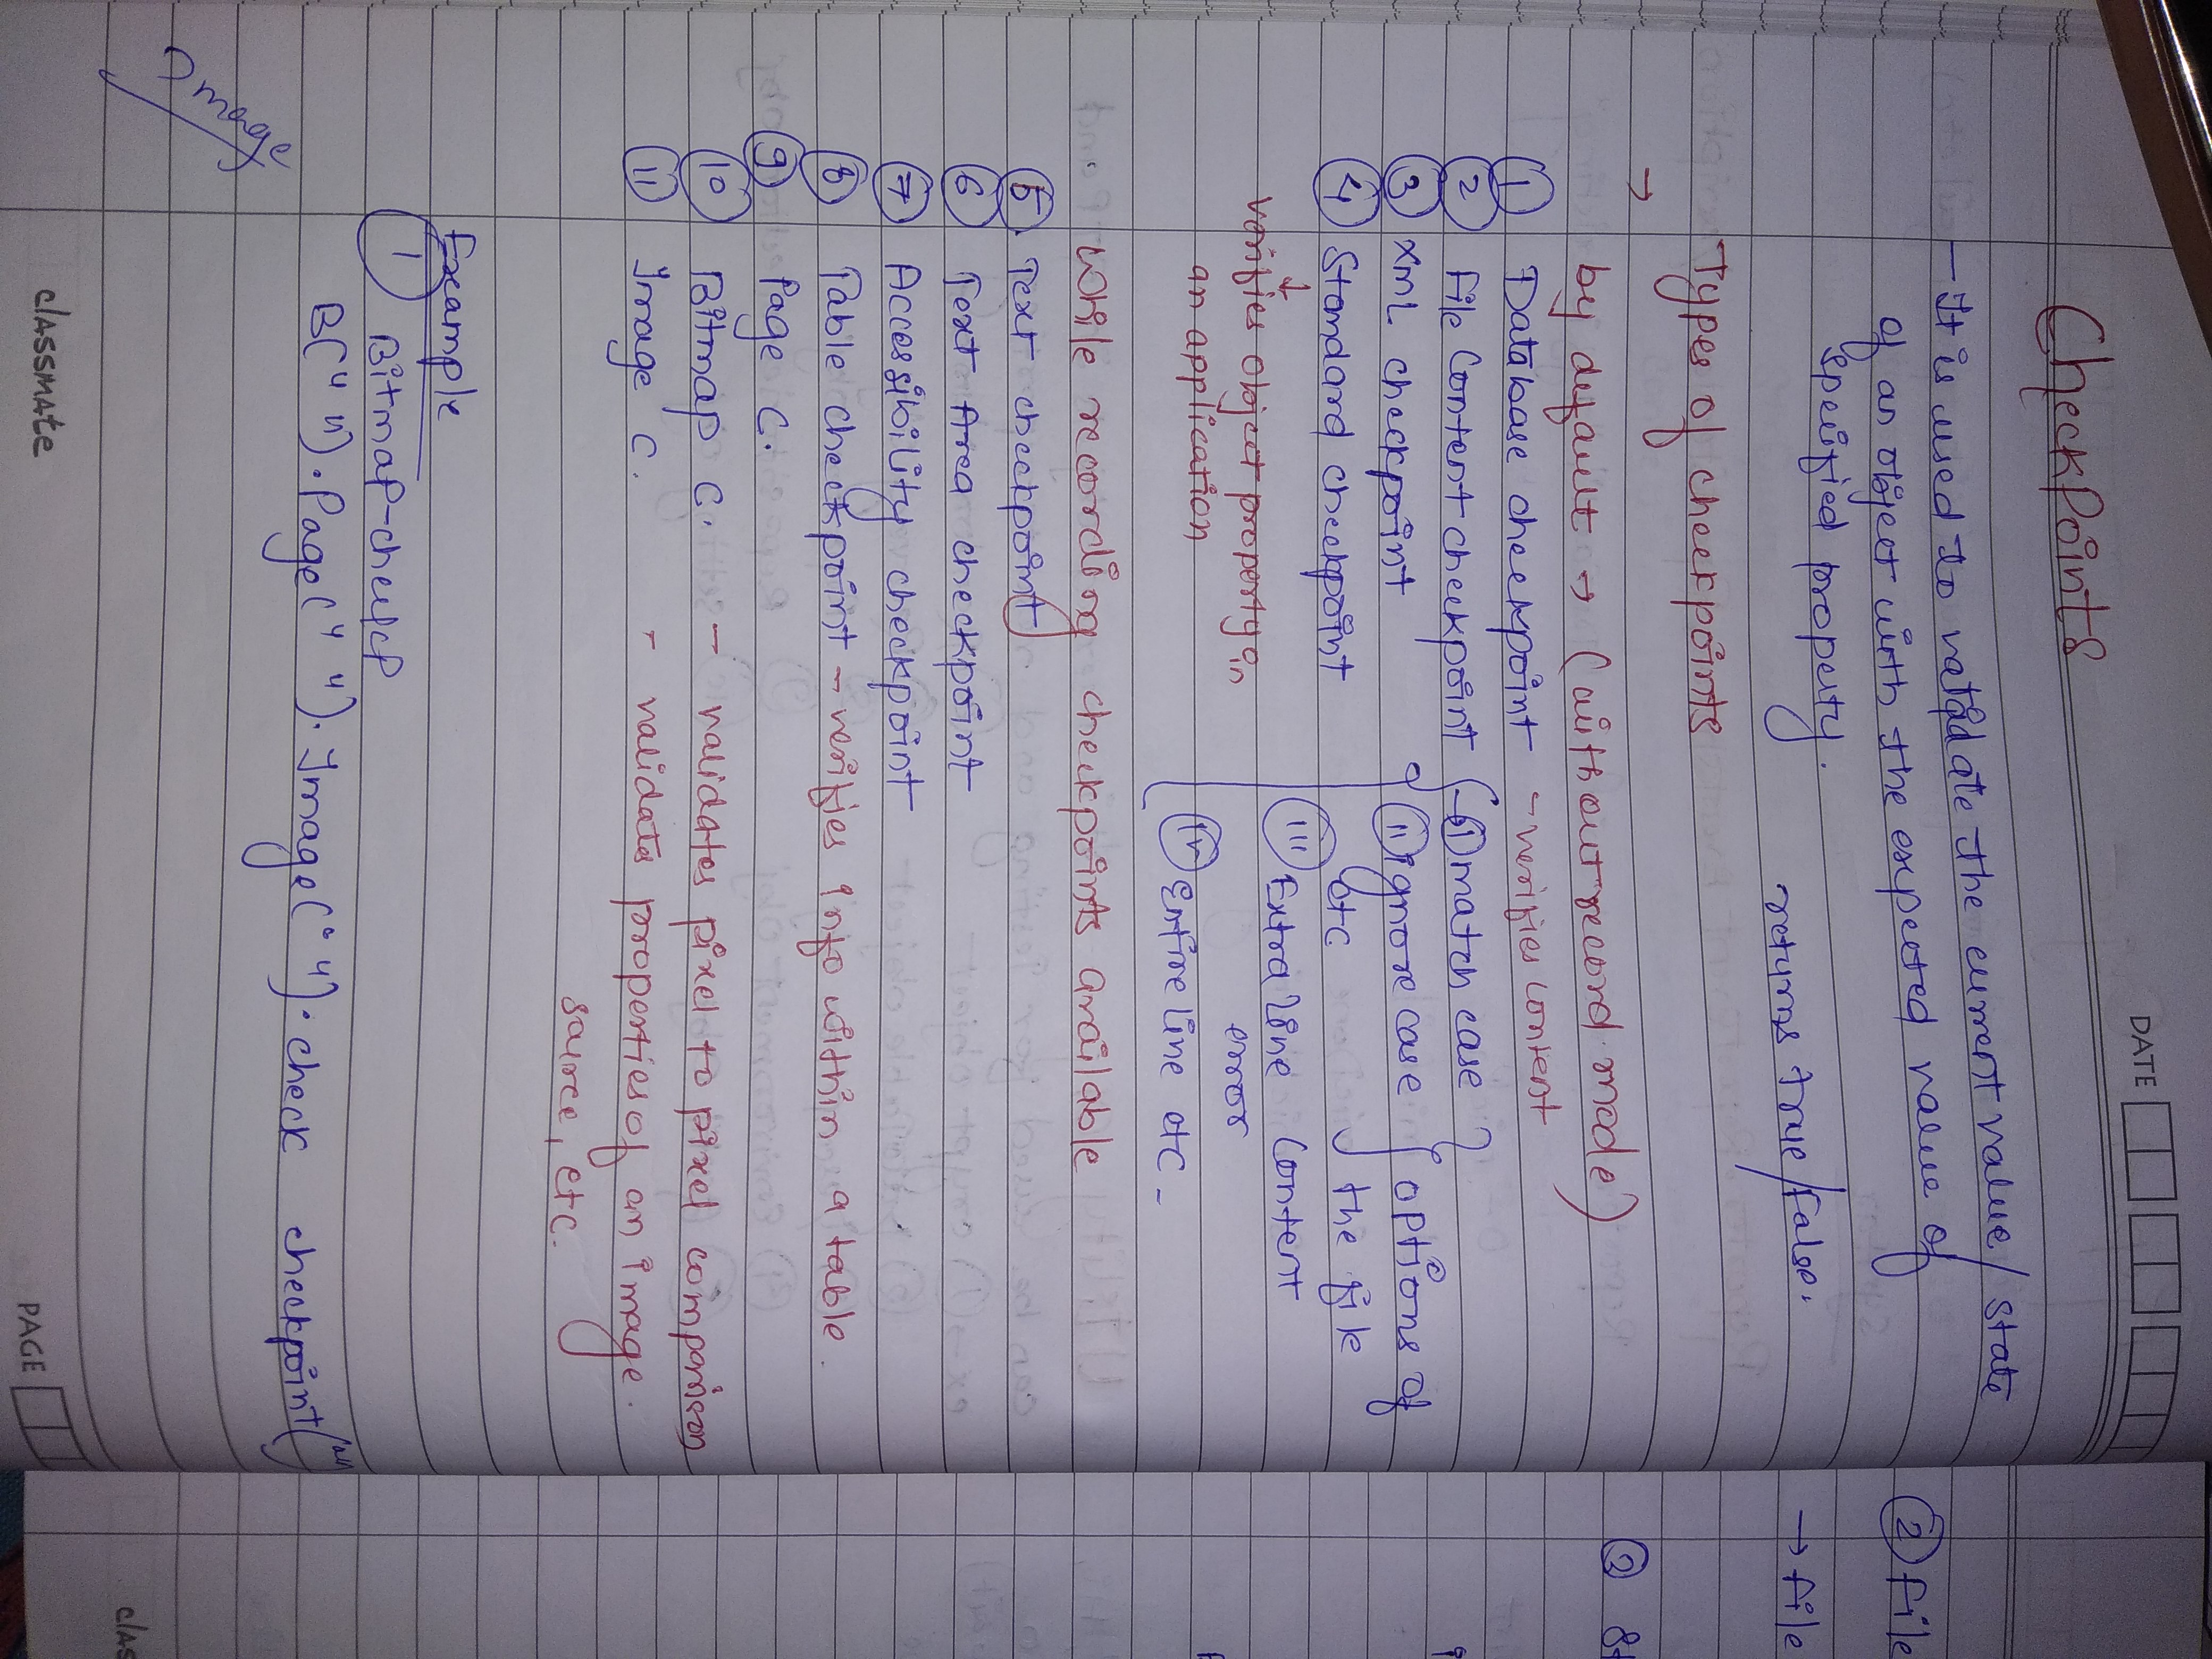 DATE
CheckPoints
- It is used to validate the current value/state
of an object with the expected value of
specified property.
returns True/False.
Types of checkpoints
→
by default → (without record mode)
① Database checkpoint - verifies content
② File Content checkpoint (i) match case } options of
③ XML checkpoint (ii) ignore case
etc the file
④ Standard checkpoint
(iii) Extra line Content
↓
verifies object property in
error
an application
(iv) entire line etc -
While recording checkpoints available
⑤ Text checkpoint
⑥ Text Area checkpoint
⑦ Accessibility checkpoint
⑧ Table checkpoint - verifies info within a table.
⑨ Page C.
⑩ Bitmap C. - validates pixel to pixel comparison
⑪ Image C. - validate properties of an image.
source, etc.
Example
① Bitmap-check
Image
B(" "). Page(" "). Image(" "). check checkpoint("")
classmate
PAGE
② File
→ file
②
clas